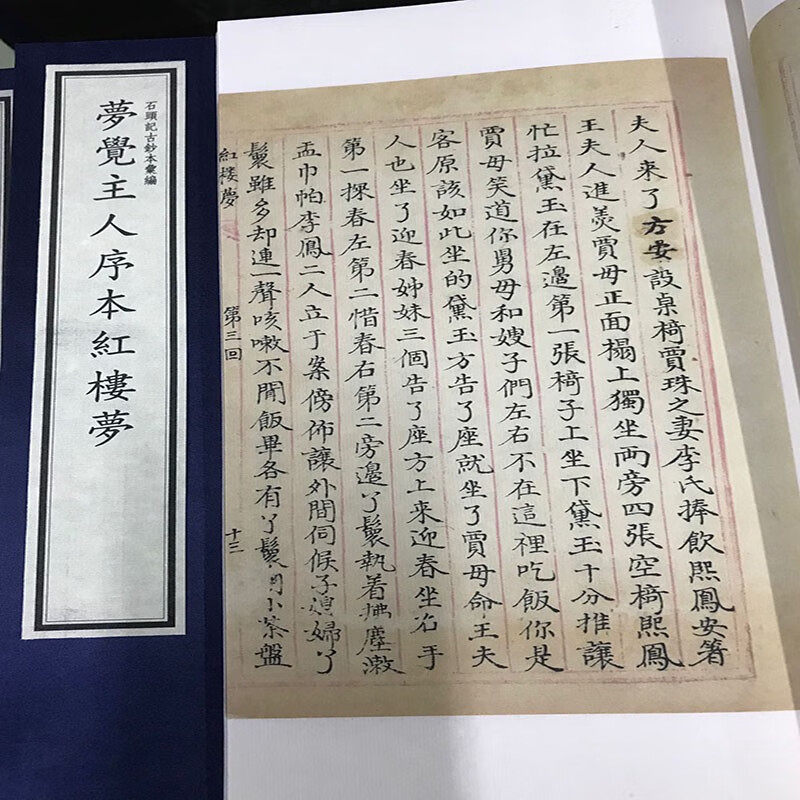 石頭記古鈔本彙編
夢覺主人序本紅樓夢
夫人來了方安設桌椅賈珠之妻李氏捧飲熙鳳安箸
王夫人進羹賈母正面榻上獨坐両旁四張空椅熙鳳
忙拉黛玉在左邊第一張椅子上坐下黛玉十分推讓
賈母笑道你舅母和嫂子們左右不在這裡吃飯你是
客原該如此坐的黛玉方告了座就坐了賈母命王夫
人也坐了迎春姊妹三個告了座方上来迎春坐右手
第一探春左第二惜春右第二旁邊丫鬟執着拂塵漱
盂巾帕李鳳二人立于案傍佈讓外間伺候子媳婦丫
鬟雖多却連一聲咳嗽不聞飯畢各有丫鬟用小茶盤
紅樓夢 第三回 十三